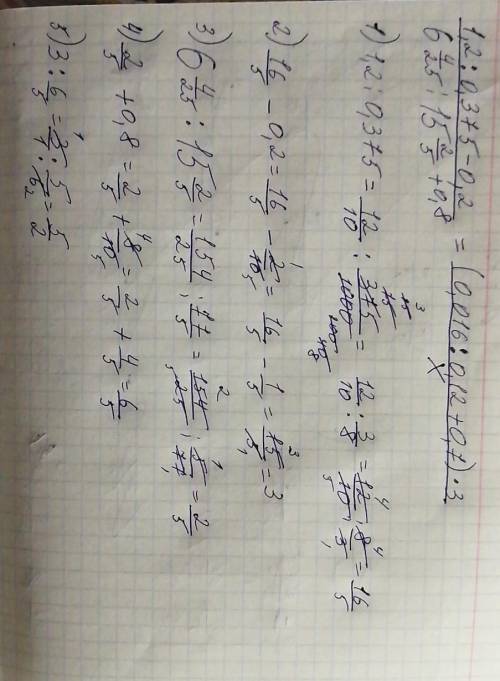 (1,2 : 0,375 - 0,2) / (6 4/25 : 15 2/5 + 0,8) = ((0,016 : 0,12 + 0,7) · 3) / x
1) 1,2 : 0,375 = 12/10 : 375/1000 = 12/10 : 3/8 = 12/10 · 8/3 = 16/5
2) 16/5 - 0,2 = 16/5 - 2/10 = 16/5 - 1/5 = 15/5 = 3
3) 6 4/25 : 15 2/5 = 154/25 : 77/5 = 154/25 · 5/77 = 2/5
4) 2/5 + 0,8 = 2/5 + 8/10 = 2/5 + 4/5 = 6/5
5) 3 : 6/5 = 3/1 · 5/6 = 5/2